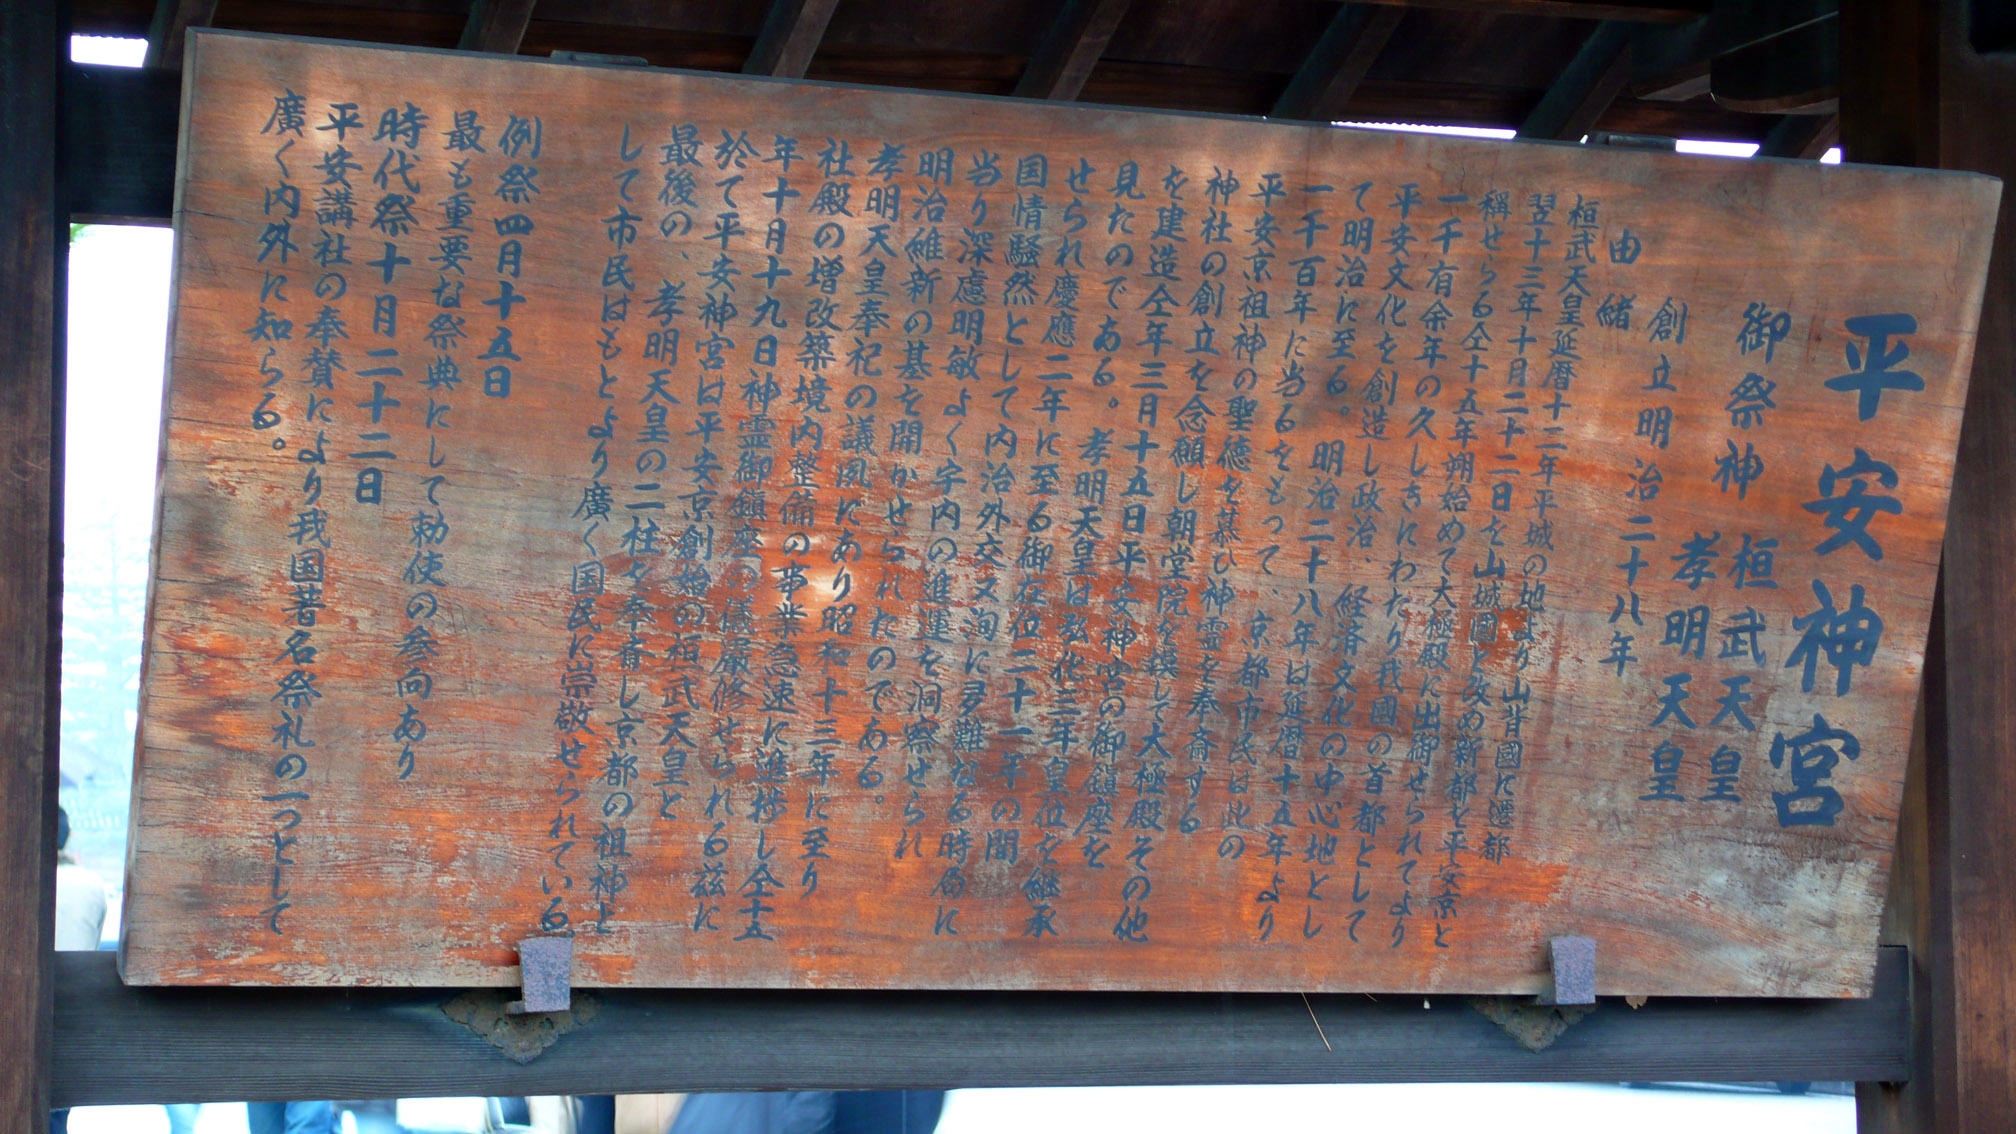 平安神宮
御祭神 桓武天皇
孝明天皇
創立明治二十八年
由緒
桓武天皇延暦十二年平城の地より山背國に遷都
翌十三年十月二十二日を山城國と改め新都を平安京と
稱せらる仝十五年朔始めて大極殿に出御せられてより
一千有余年の久しきにわたり我國の首都として
平安文化を創造し政治、経済文化の中心地とし
て明治に至る。明治二十八年は延暦十五年より
一千百年に当るをもって、京都市民は此の
平安京祖神の聖徳を慕ひ神霊を奉斎する
神社の創立を念願し朝堂院を模して大極殿その他
を建造仝年三月十五日平安神宮の御鎮座を
見たのである。孝明天皇は弘化三年皇位を継承
せられ慶應二年に至る御在位二十一年の間
国情騒然として内治外交又洵に多難なる時局に
当り深慮明敏よく宇内の進運を洞察せられ
明治維新の基を開かせられたのである。
孝明天皇奉祀の議夙にあり昭和十三年に至り
社殿の増改築境内整備の事業急速に進捗し仝十五
年十月十九日神霊御鎮座の儀厳修せられる茲に
於て平安神宮は平安京創始の桓武天皇と
最後の、孝明天皇の二柱を奉斎し京都の祖神と
して市民はもとより廣く国民に崇敬せられている
例祭四月十五日
最も重要な祭典にして勅使の参向あり
時代祭十月二十二日
平安講社の奉賛により我国著名祭礼の一つとして
廣く内外に知らる。